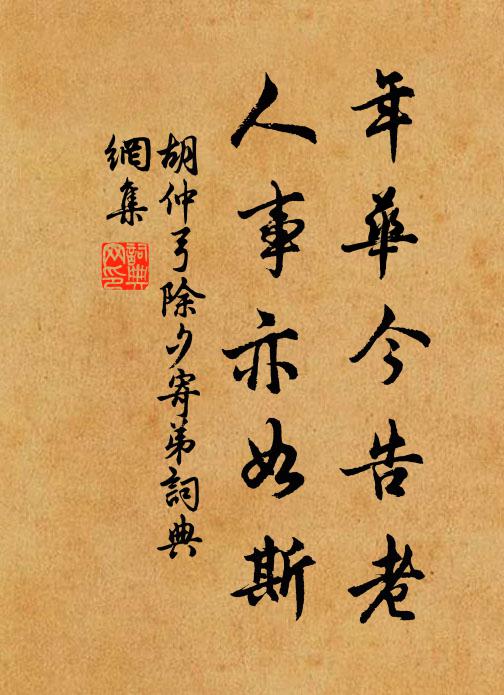 年華今告老
人事亦如斯
胡仲弓除夕寄弟詞典
網集
詞典
网印